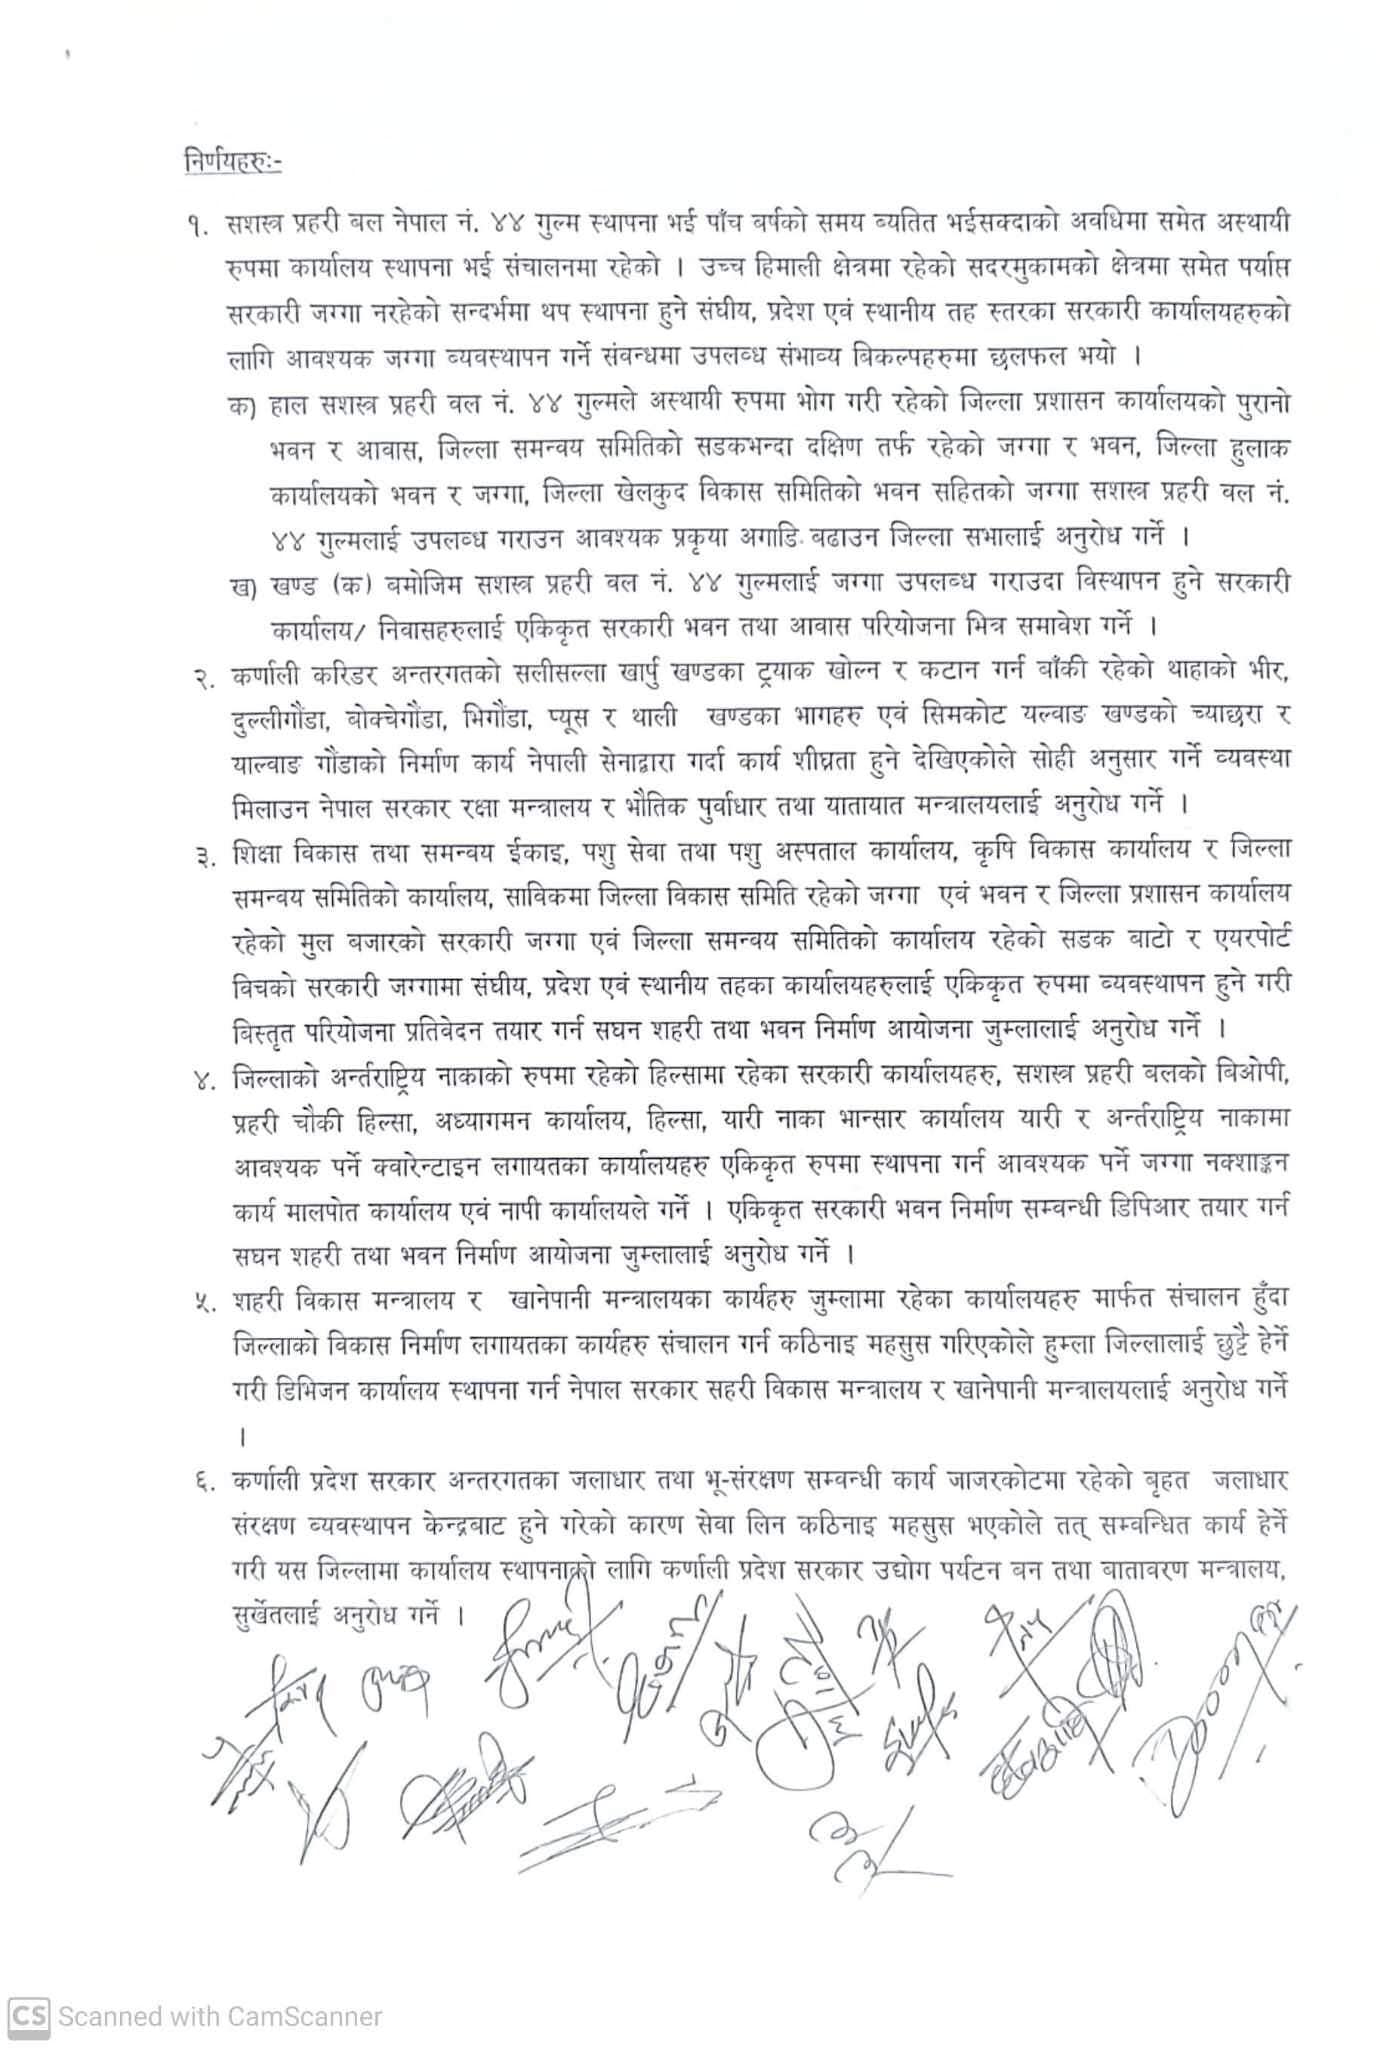 निर्णयहरुः-
१. सशस्त्र प्रहरी बल नेपाल नं. ४४ गुल्म स्थापना भई पाँच बर्षको समय व्यतित भईसक्दाको अवधिमा समेत अस्थायी
रुपमा कार्यालय स्थापना भई संचालनमा रहेको । उच्च हिमाली क्षेत्रमा रहेको सदरमुकामको क्षेत्रमा समेत पर्याप्त
सरकारी जग्गा नरहेको सन्दर्भमा थप स्थापना हुने संघीय, प्रदेश एवं स्थानीय तह स्तरका सरकारी कार्यालयहरुको
लागि आवश्यक जग्गा व्यवस्थापन गर्ने संबन्धमा उपलव्ध संभाव्य बिकल्पहरुमा छलफल भयो ।
क) हाल सशस्त्र प्रहरी वल नं. ४४ गुल्मले अस्थायी रुपमा भोग गरी रहेको जिल्ला प्रशासन कार्यालयको पुरानो
भवन र आवास, जिल्ला समन्वय समितिको सडकभन्दा दक्षिण तर्फ रहेको जग्गा र भवन, जिल्ला हुलाक
कार्यालयको भवन र जग्गा, जिल्ला खेलकुद विकास समितिको भवन सहितको जग्गा सशस्त्र प्रहरी वल नं.
४४ गुल्मलाई उपलव्ध गराउन आवश्यक प्रकृया अगाडि बढाउन जिल्ला सभालाई अनुरोध गर्ने ।
ख) खण्ड (क) बमोजिम सशस्त्र प्रहरी वल नं. ४४ गुल्मलाई जग्गा उपलव्ध गराउदा विस्थापन हुने सरकारी
कार्यालय/ निवासहरुलाई एकिकृत सरकारी भवन तथा आवास परियोजना भित्र समावेश गर्ने ।
२. कर्णाली करिडर अन्तरगतको सलीसल्ला खार्पु खण्डका ट्र्याक खोल्न र कटान गर्न बाँकी रहेको थाहाको भीर,
दुल्लीगौंडा, बोक्चेगौंडा, भिगौंडा, प्यूस र थाली खण्डका भागहरु एवं सिमकोट यल्वाङ खण्डको च्याछरा र
याल्वाङ गौंडाको निर्माण कार्य नेपाली सेनाद्वारा गर्दा कार्य शीघ्रता हुने देखिएकोले सोही अनुसार गर्ने व्यवस्था
मिलाउन नेपाल सरकार रक्षा मन्त्रालय र भौतिक पुर्वाधार तथा यातायात मन्त्रालयलाई अनुरोध गर्ने ।
३. शिक्षा विकास तथा समन्वय ईकाइ, पशु सेवा तथा पशु अस्पताल कार्यालय, कृषि विकास कार्यालय र जिल्ला
समन्वय समितिको कार्यालय, साविकमा जिल्ला विकास समिति रहेको जग्गा एवं भवन र जिल्ला प्रशासन कार्यालय
रहेको मुल बजारको सरकारी जग्गा एवं जिल्ला समन्वय समितिको कार्यालय रहेको सडक बाटो र एयरपोर्ट
विचको सरकारी जग्गामा संघीय, प्रदेश एवं स्थानीय तहका कार्यालयहरुलाई एकिकृत रुपमा व्यवस्थापन हुने गरी
विस्तृत परियोजना प्रतिवेदन तयार गर्न सघन शहरी तथा भवन निर्माण आयोजना जुम्लालाई अनुरोध गर्ने ।
४. जिल्लाको अर्न्तराष्ट्रिय नाकाको रुपमा रहेको हिल्सामा रहेका सरकारी कार्यालयहरु, सशस्त्र प्रहरी बलको बिओपी,
प्रहरी चौकी हिल्सा, अध्यागमन कार्यालय, हिल्सा, यारी नाका भान्सार कार्यालय यारी र अर्न्तराष्ट्रिय नाकामा
आवश्यक पर्ने क्वारेन्टाइन लगायतका कार्यालयहरु एकिकृत रुपमा स्थापना गर्न आवश्यक पर्ने जग्गा नक्शाङ्कन
कार्य मालपोत कार्यालय एवं नापी कार्यालयले गर्ने । एकिकृत सरकारी भवन निर्माण सम्बन्धी डिपिआर तयार गर्न
सघन शहरी तथा भवन निर्माण आयोजना जुम्लालाई अनुरोध गर्ने ।
५. शहरी विकास मन्त्रालय र खानेपानी मन्त्रालयका कार्यहरु जुम्लामा रहेका कार्यालयहरु मार्फत संचालन हुँदा
जिल्लाको विकास निर्माण लगायतका कार्यहरु संचालन गर्न कठिनाइ महसुस गरिएकोले हुम्ला जिल्लालाई छुट्टै हेर्ने
गरी डिभिजन कार्यालय स्थापना गर्न नेपाल सरकार सहरी विकास मन्त्रालय र खानेपानी मन्त्रालयलाई अनुरोध गर्ने
।
६. कर्णाली प्रदेश सरकार अन्तरगतका जलाधार तथा भू-संरक्षण सम्बन्धी कार्य जाजरकोटमा रहेको बृहत जलाधार
संरक्षण व्यवस्थापन केन्द्रबाट हुने गरेको कारण सेवा लिन कठिनाइ महसुस भएकोले तत् सम्वन्धित कार्य हेर्ने
गरी यस जिल्लामा कार्यालय स्थापनाको लागि कर्णाली प्रदेश सरकार उद्योग पर्यटन बन तथा बातावरण मन्त्रालय,
सुर्खेतलाई अनुरोध गर्ने ।
CS Scanned with CamScanner